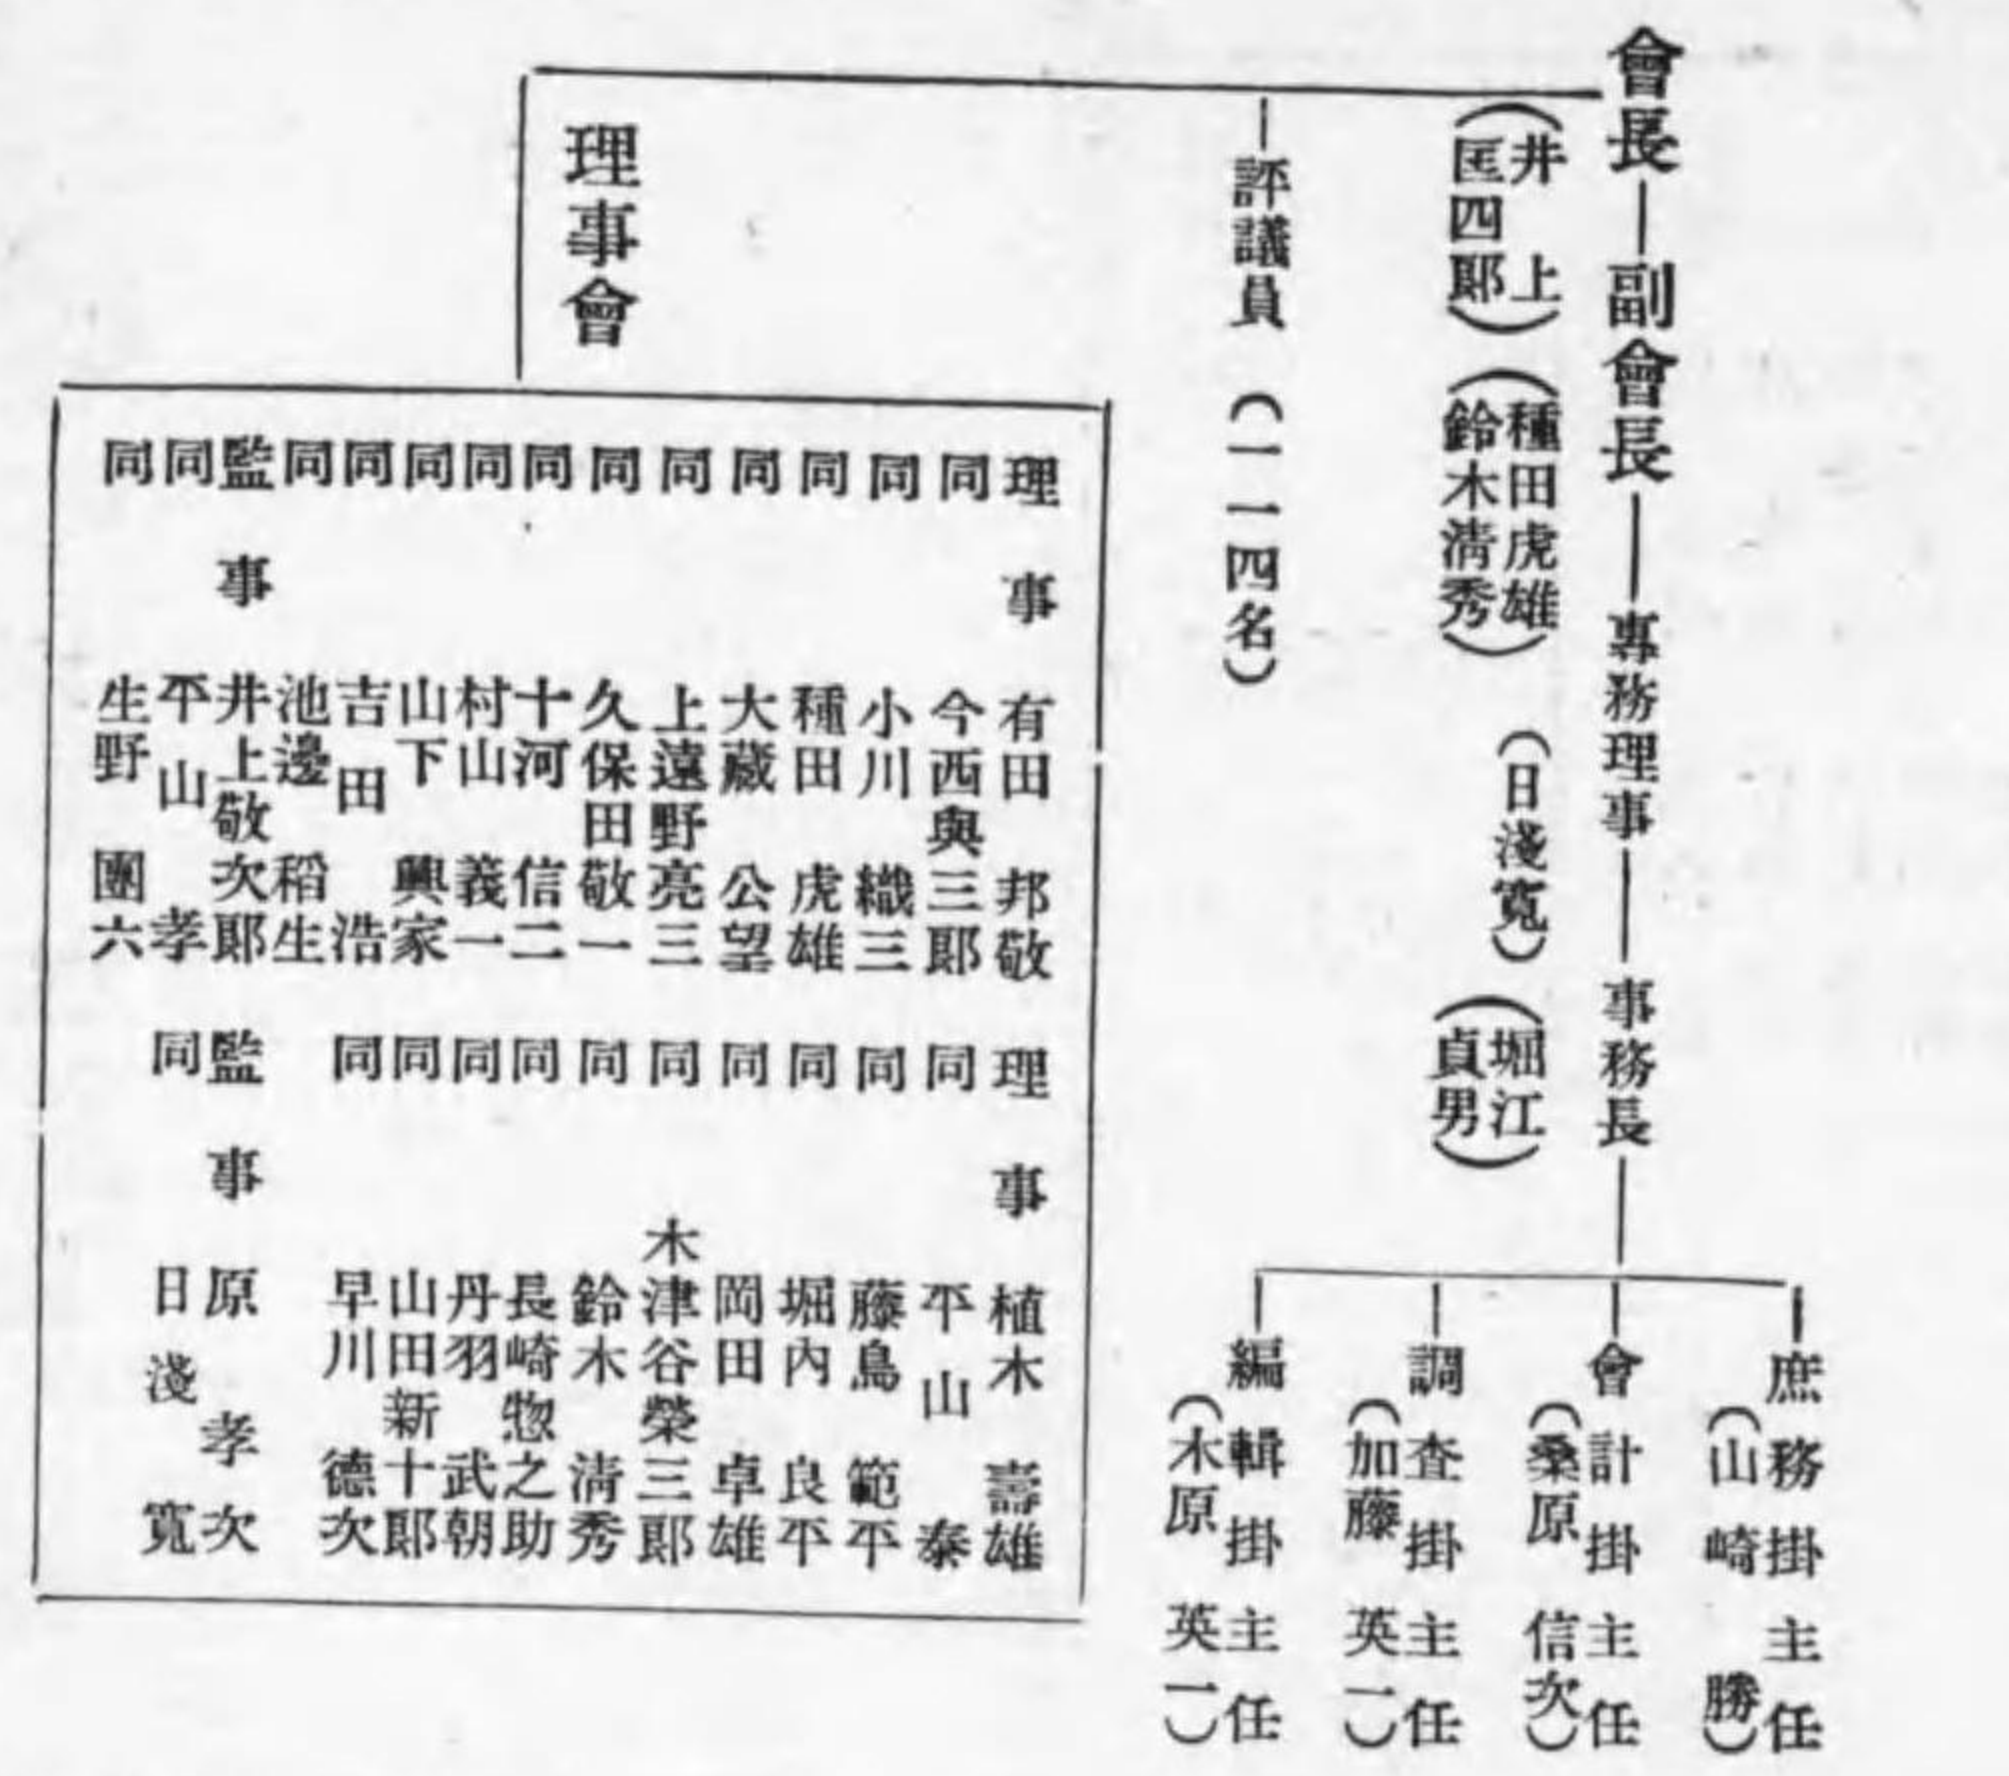 會長―副會長―專務理事―事務長
(井上匡四郎)
(種田虎雄
鈴木淸秀)
(日淺寬)
(堀江貞男)
庶務掛主任
(山崎勝)
會計掛主任
(桑原信次)
調査掛主任
(加藤英一)
編輯掛主任
(木原英一)
評議員(一一四名)
理事會
理事 有田邦敬
同 今西與三郎
同 小川織三
同 種田虎雄
同 大藏公望
同 上遠野亮三
同 久保田敬一
同 十河信二
同 村山義一
同 山下興家
同 吉田浩
同 池邊稻生
監事 井上敬次郎
同 平山孝
同 生野團六
理事 植木壽雄
同 平山泰
同 藤鳥範平
同 堀內良平
同 岡田卓雄
同 木津谷榮三郎
同 鈴木淸秀
同 長崎惣之助
同 丹羽武朝
同 山田新十郎
同 早川德次
監事 原孝次
同 日淺寬